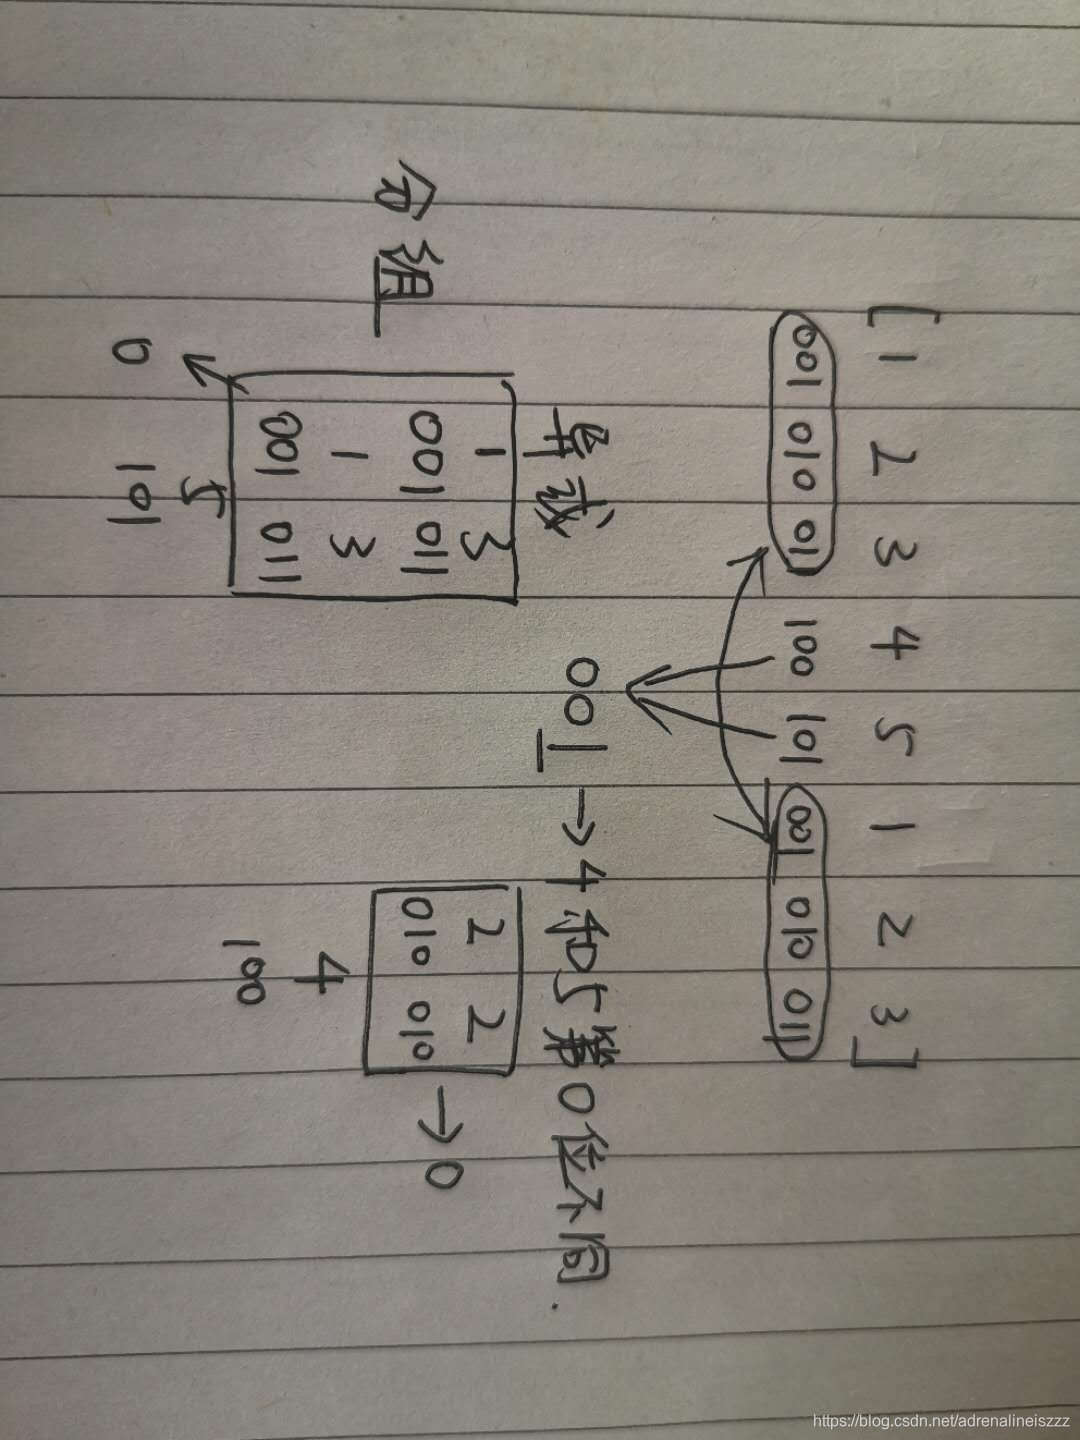 [ 1 2 3 4 5 1 2 3 ]
001 010 011 100 101 001 010 011
异或 001 → 4和5第0位不同.
1 3 2 2
001 011 010 010 → 0
分组
1 3 4
001 011 100
5
0 101
https://blog.csdn.net/adrenalineiszzz